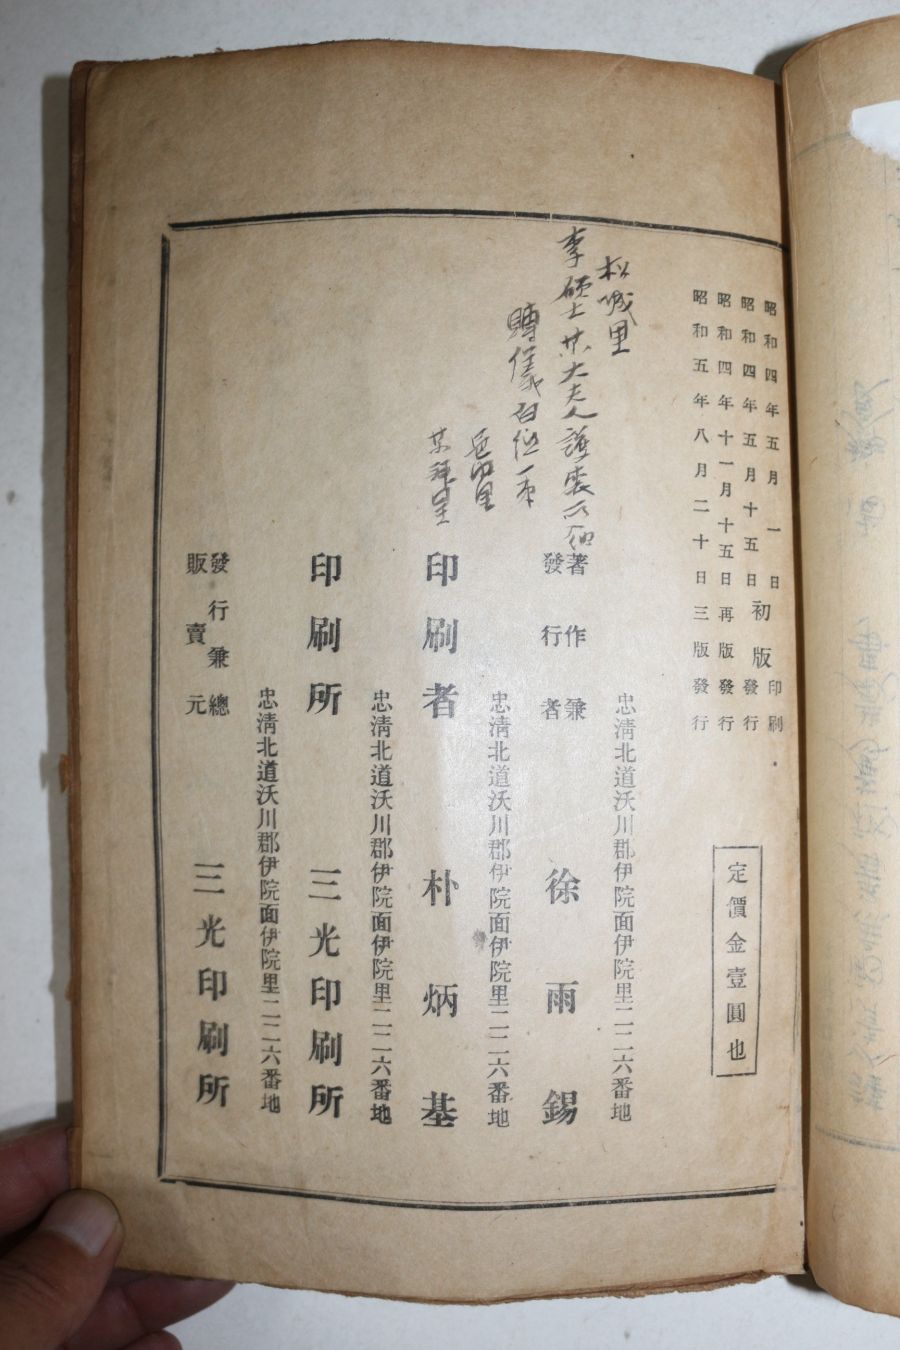 昭和四年五月一日初版印刷
昭和四年五月十五日初版發行
昭和四年十一月十五日再版發行
昭和五年八月二十日三版發行
定價金壹圓也
松城里
李碩士 大夫人護喪所
賻儀白伍一
里
忠淸北道沃川郡伊院面伊院里二二六番地
著作兼
發行者 徐雨錫
忠淸北道沃川郡伊院面伊院里二二六番地
印刷者 朴炳基
忠淸北道沃川郡伊院面伊院里二二六番地
印刷所 三光印刷所
忠淸北道沃川郡伊院面伊院里二二六番地
發行兼總
販賣元 三光印刷所